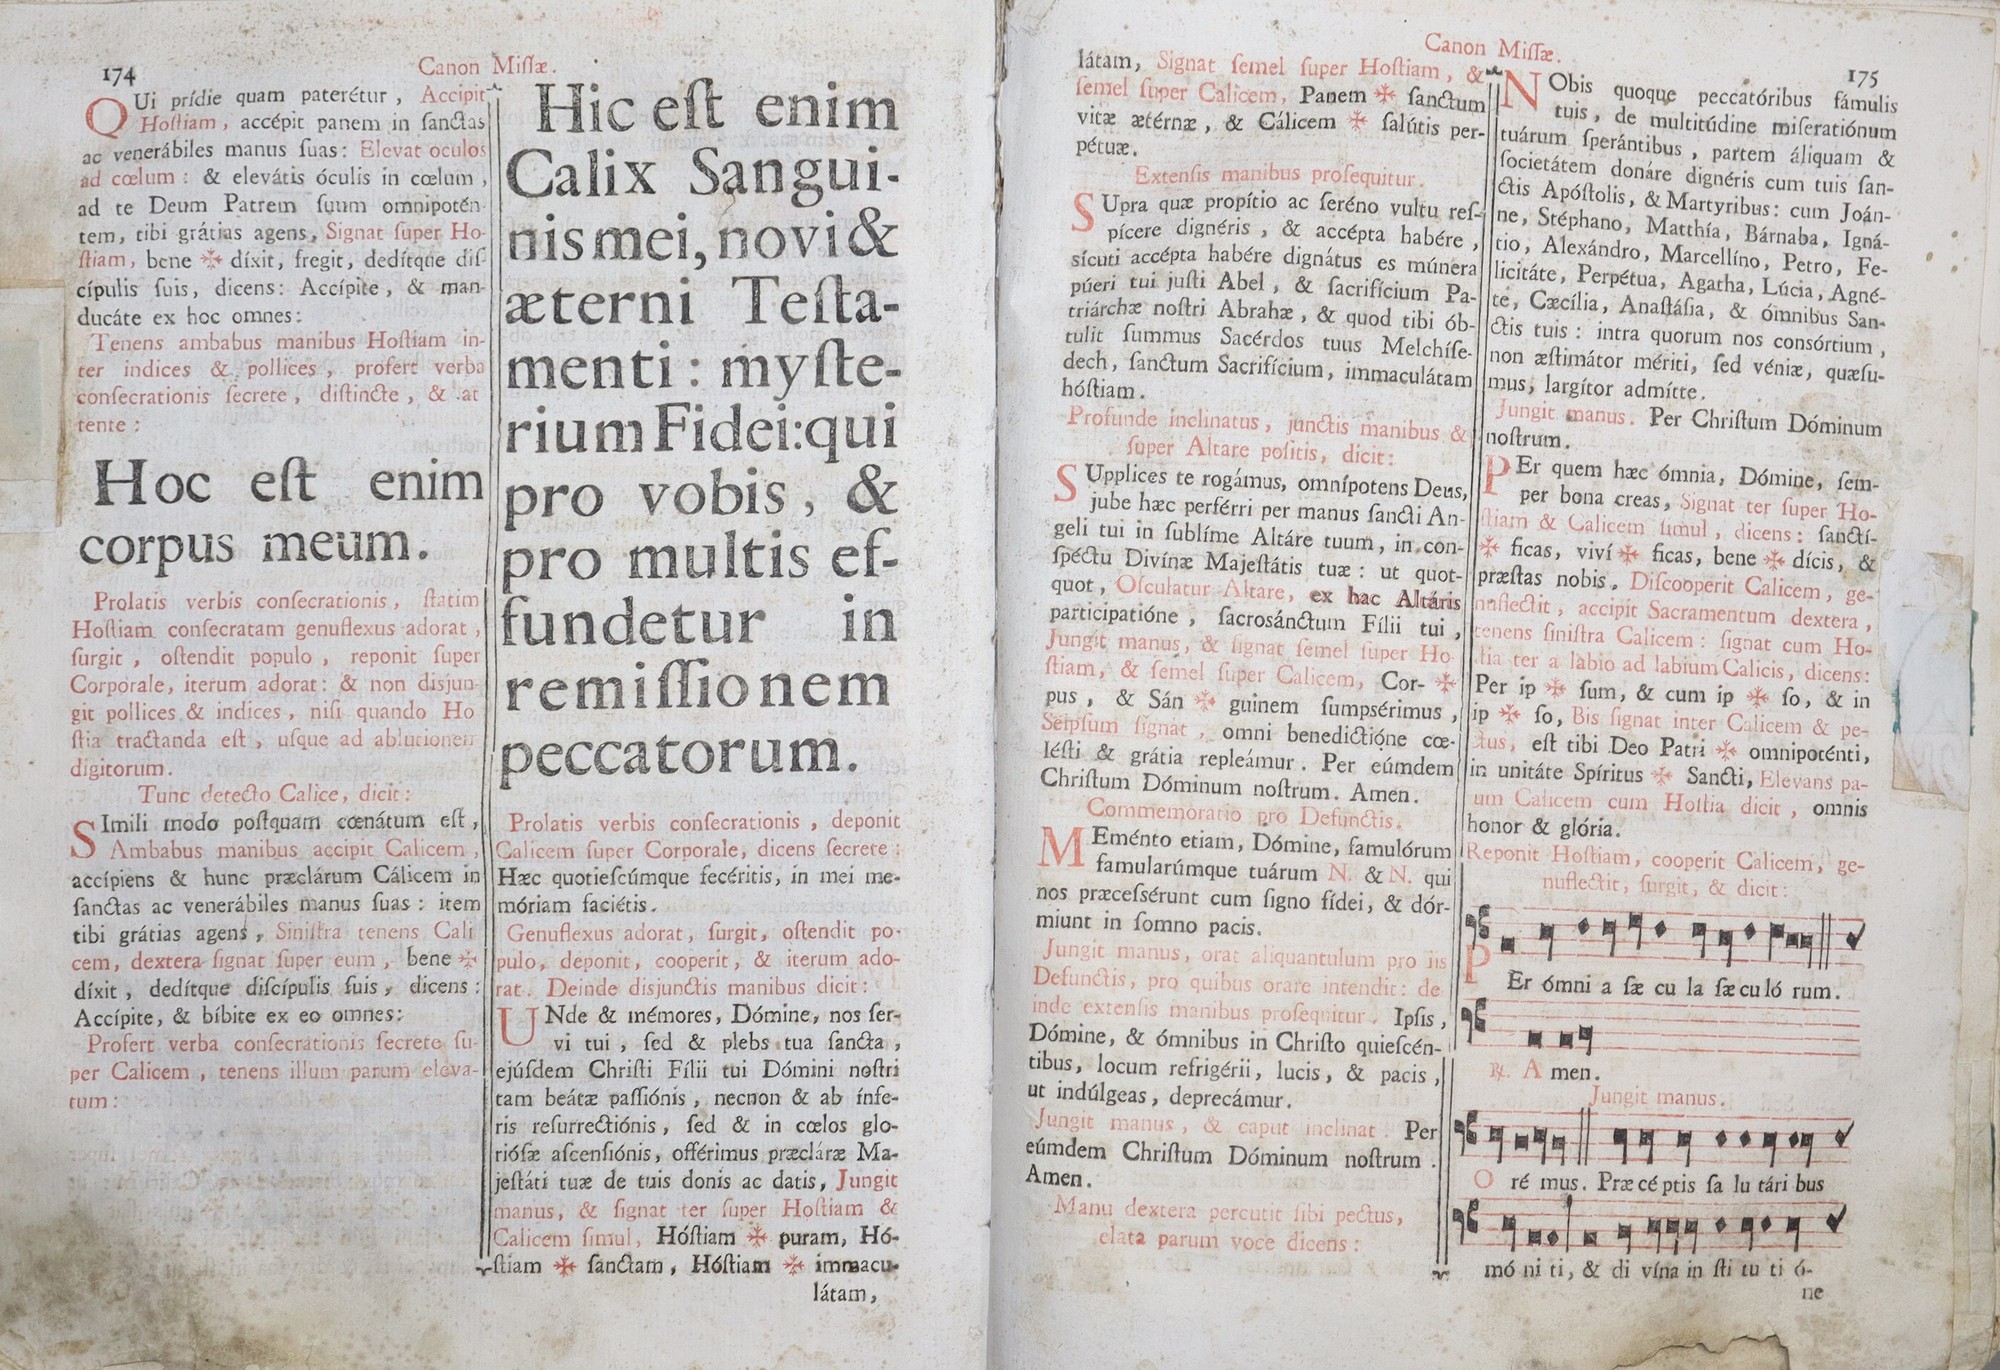 174
Canon Miſſæ.
QUi prídie quam paterétur, Accipit
Hoſtiam, accépit panem in ſanctas
ac venerábiles manus ſuas: Elevat oculos
ad cœlum: & elevátis óculis in cœlum,
ad te Deum Patrem ſuum omnipotén-
tem, tibi grátias agens, Signat ſuper Ho-
ſtiam, bene ✠ díxit, fregit, dedítque diſ-
cípulis ſuis, dicens: Accípite, & man-
ducáte ex hoc omnes:
Tenens ambabus manibus Hoſtiam in-
ter indices & pollices, profert verba
conſecrationis ſecrete, diſtincte, & at
tente:
Hoc eſt enim
corpus meum.
Prolatis verbis conſecrationis, ſtatim
Hoſtiam conſecratam genuflexus adorat,
ſurgit, oſtendit populo, reponit ſuper
Corporale, iterum adorat: & non disjun-
git pollices & indices, niſi quando Ho
ſtia tractanda eſt, uſque ad ablutionem
digitorum.
Tunc detecto Calice, dicit:
SImili modo poſtquam cœnátum eſt,
Ambabus manibus accipit Calicem,
accípiens & hunc præclárum Cálicem in
ſanctas ac venerábiles manus ſuas: item
tibi grátias agens, Siniſtra tenens Cali
cem, dextera ſignat ſuper eum, bene ✠
díxit, dedítque diſcípulis ſuis, dicens:
Accípite, & bíbite ex eo omnes:
Profert verba conſecrationis ſecrete ſu-
per Calicem, tenens illum parum eleva-
tum:
Hic eſt enim
Calix Sangui-
nis mei, novi &
æterni Teſta-
menti: myſte-
rium Fidei: qui
pro vobis, &
pro multis ef-
fundetur in
remiſſionem
peccatorum.
Prolatis verbis conſecrationis, deponit
Calicem ſuper Corporale, dicens ſecrete:
Hæc quotieſcúmque fecéritis, in mei me-
móriam faciétis.
Genuflexus adorat, ſurgit, oſtendit po-
pulo, deponit, cooperit, & iterum ado-
rat. Deinde disjunctis manibus dicit:
UNde & mémores, Dómine, nos ſer-
vi tui, ſed & plebs tua ſancta,
ejúſdem Chriſti Fílii tui Dómini noſtri
tam beátæ paſſiónis, necnon & ab ínfe-
ris reſurrectiónis, ſed & in cœlos glo-
rióſæ aſcenſiónis, offérimus præcláræ Ma-
jeſtáti tuæ de tuis donis ac datis, Jungit
manus, & ſignat ter ſuper Hoſtiam &
Calicem ſimul, Hóſtiam ✠ puram, Hó-
ſtiam ✠ ſanctam, Hóſtiam ✠ immacu-
látam,
Canon Miſſæ.
175
látam, Signat ſemel ſuper Hoſtiam, &
ſemel ſuper Calicem, Panem ✠ ſanctum
vitæ ætérnæ, & Cálicem ✠ ſalútis per-
pétuæ.
Extenſis manibus proſequitur.
SUpra quæ propítio ac ſeréno vultu reſ-
pícere dignéris, & accépta habére,
sícuti accépta habére dignátus es múnera
púeri tui juſti Abel, & ſacrifícium Pa-
triárchæ noſtri Abrahæ, & quod tibi ób-
tulit ſummus Sacérdos tuus Melchíſe-
dech, ſanctum Sacrifícium, immaculátam
hóſtiam.
Profunde inclinatus, junctis manibus &
ſuper Altare poſitis, dicit:
SUpplices te rogámus, omnípotens Deus,
jube hæc perférri per manus ſancti An-
geli tui in ſublíme Altáre tuum, in con-
ſpéctu Divínæ Majeſtátis tuæ: ut quot-
quot, Oſculatur Altare, ex hac Altáris
participatióne, ſacrosánctum Fílii tui,
Jungit manus, & ſignat ſemel ſuper Ho
ſtiam, & ſemel ſuper Calicem, Cor- ✠
pus, & Sán ✠ guinem ſumpsérimus,
Seipſum ſignat, omni benedictióne cœ-
léſti & grátia repleámur. Per eúmdem
Chriſtum Dóminum noſtrum. Amen.
Commemoratio pro Defunctis.
MEménto etiam, Dómine, famulórum
famularúmque tuárum N. & N. qui
nos præceſsérunt cum ſigno fídei, & dór-
miunt in ſomno pacis.
Jungit manus, orat aliquantulum pro iis
Defunctis, pro quibus orare intendit: de
inde extenſis manibus proſequitur. Ipſis,
Dómine, & ómnibus in Chriſto quieſcén-
tibus, locum refrigérii, lucis, & pacis,
ut indúlgeas, deprecámur.
Jungit manus, & caput inclinat. Per
eúmdem Chriſtum Dóminum noſtrum.
Amen.
Manu dextera percutit ſibi pectus,
elata parum voce dicens:
NObis quoque peccatóribus fámulis
tuis, de multitúdine miſeratiónum
tuárum ſperántibus, partem áliquam &
ſocietátem donáre dignéris cum tuis ſan-
ctis Apóſtolis, & Martyribus: cum Joán-
ne, Stéphano, Matthía, Bárnaba, Igná-
tio, Alexándro, Marcellíno, Petro, Fe-
licitáte, Perpétua, Agatha, Lúcia, Agné-
te, Cæcília, Anaſtáſia, & ómnibus San-
ctis tuis: intra quorum nos consórtium,
non æſtimátor mériti, ſed véniæ, quæſu-
mus, largítor admítte.
Jungit manus. Per Chriſtum Dóminum
noſtrum.
PEr quem hæc ómnia, Dómine, ſem-
per bona creas, Signat ter ſuper Ho-
ſtiam & Calicem ſimul, dicens: ſanctí-
✠ ficas, viví ✠ ficas, bene ✠ dícis, &
præſtas nobis. Diſcooperit Calicem, ge-
nuflectit, accipit Sacramentum dextera,
tenens ſiniſtra Calicem: ſignat cum Ho-
ſtia ter a labio ad labium Calicis, dicens:
Per ip ✠ ſum, & cum ip ✠ ſo, & in
ip ✠ ſo, Bis ſignat inter Calicem & pe-
ctus, eſt tibi Deo Patri ✠ omnipoténti,
in unitáte Spíritus ✠ Sancti, Elevans pa-
um Calicem cum Hoſtia dicit, omnis
honor & glória.
Reponit Hoſtiam, cooperit Calicem, ge-
nuflectit, ſurgit, & dicit:
PEr ómni a ſæ cu la ſæ culó rum.
℟. A men.
Jungit manus.
O ré mus. Præ cé ptis ſa lu tári bus
mó ni ti, & di vína in ſti tu ti ó-
ne